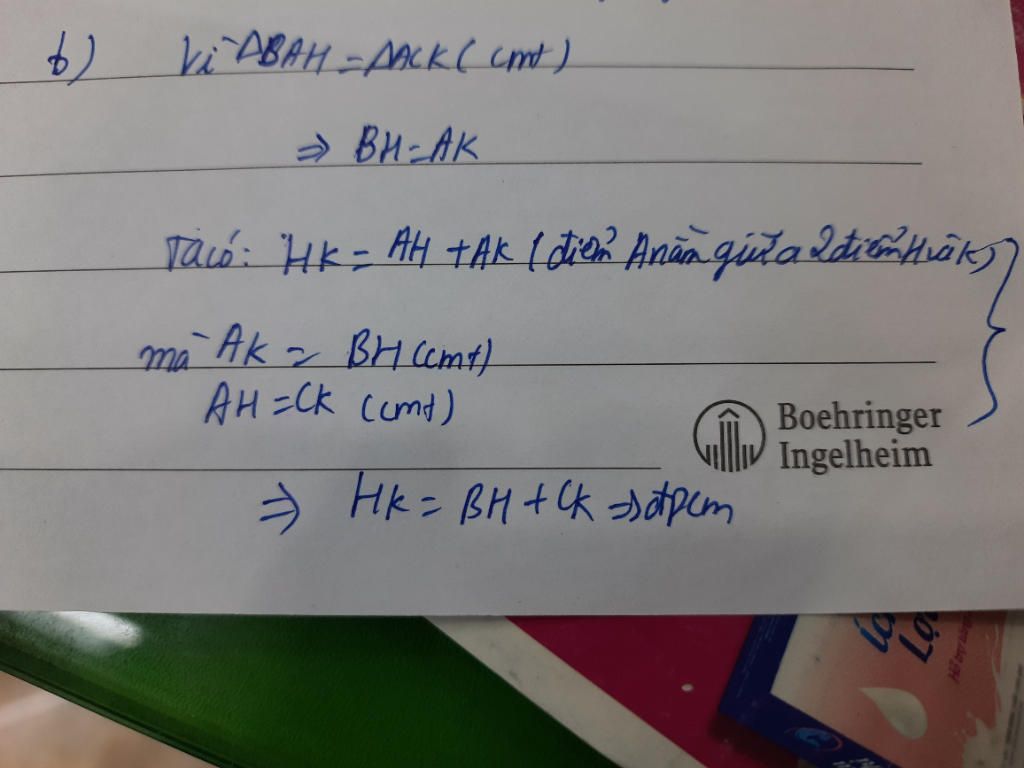 b) Vì ΔBAH = ΔACK (cmt)
⇒ BH = AK
Ta có: HK = AH + AK (điểm A nằm giữa 2 điểm H và K)
mà AK = BH (cmt)
AH = CK (cmt)
Boehringer
Ingelheim
⇒ HK = BH + CK ⇒ đpcm